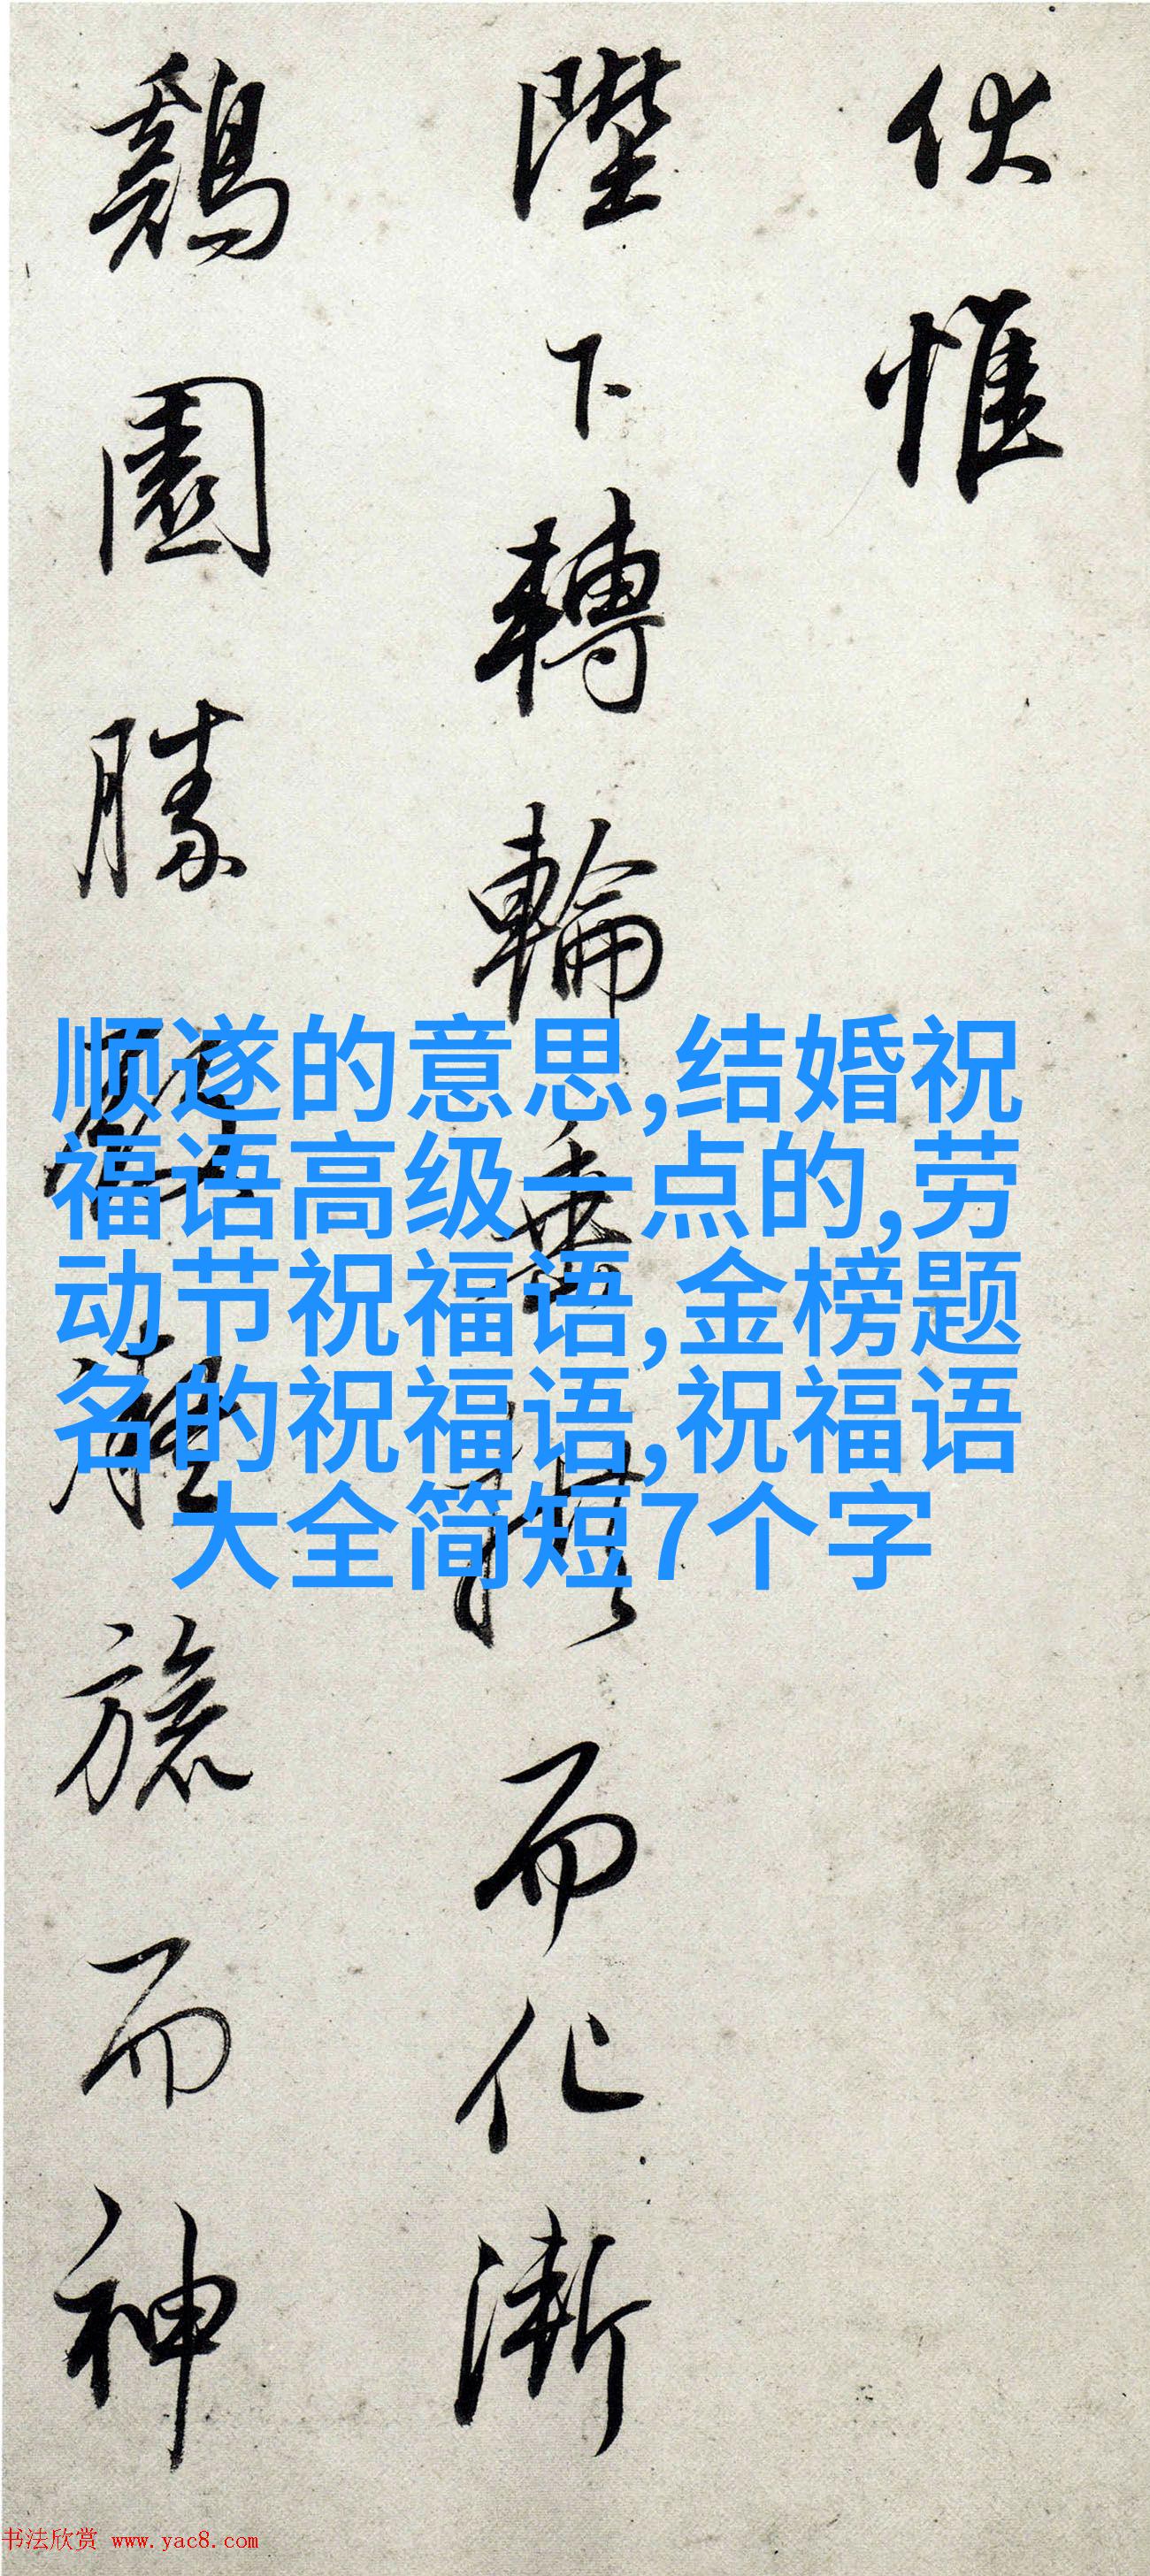 伏惟
陛下轉輪垂拱而化漸
鷄園勝
旅而神
顺遂的意思,结婚祝
福语高级一点的,劳
动节祝福语,金榜题
名的祝福语,祝福语
大全简短7个字
书法欣赏 www.yac8.com